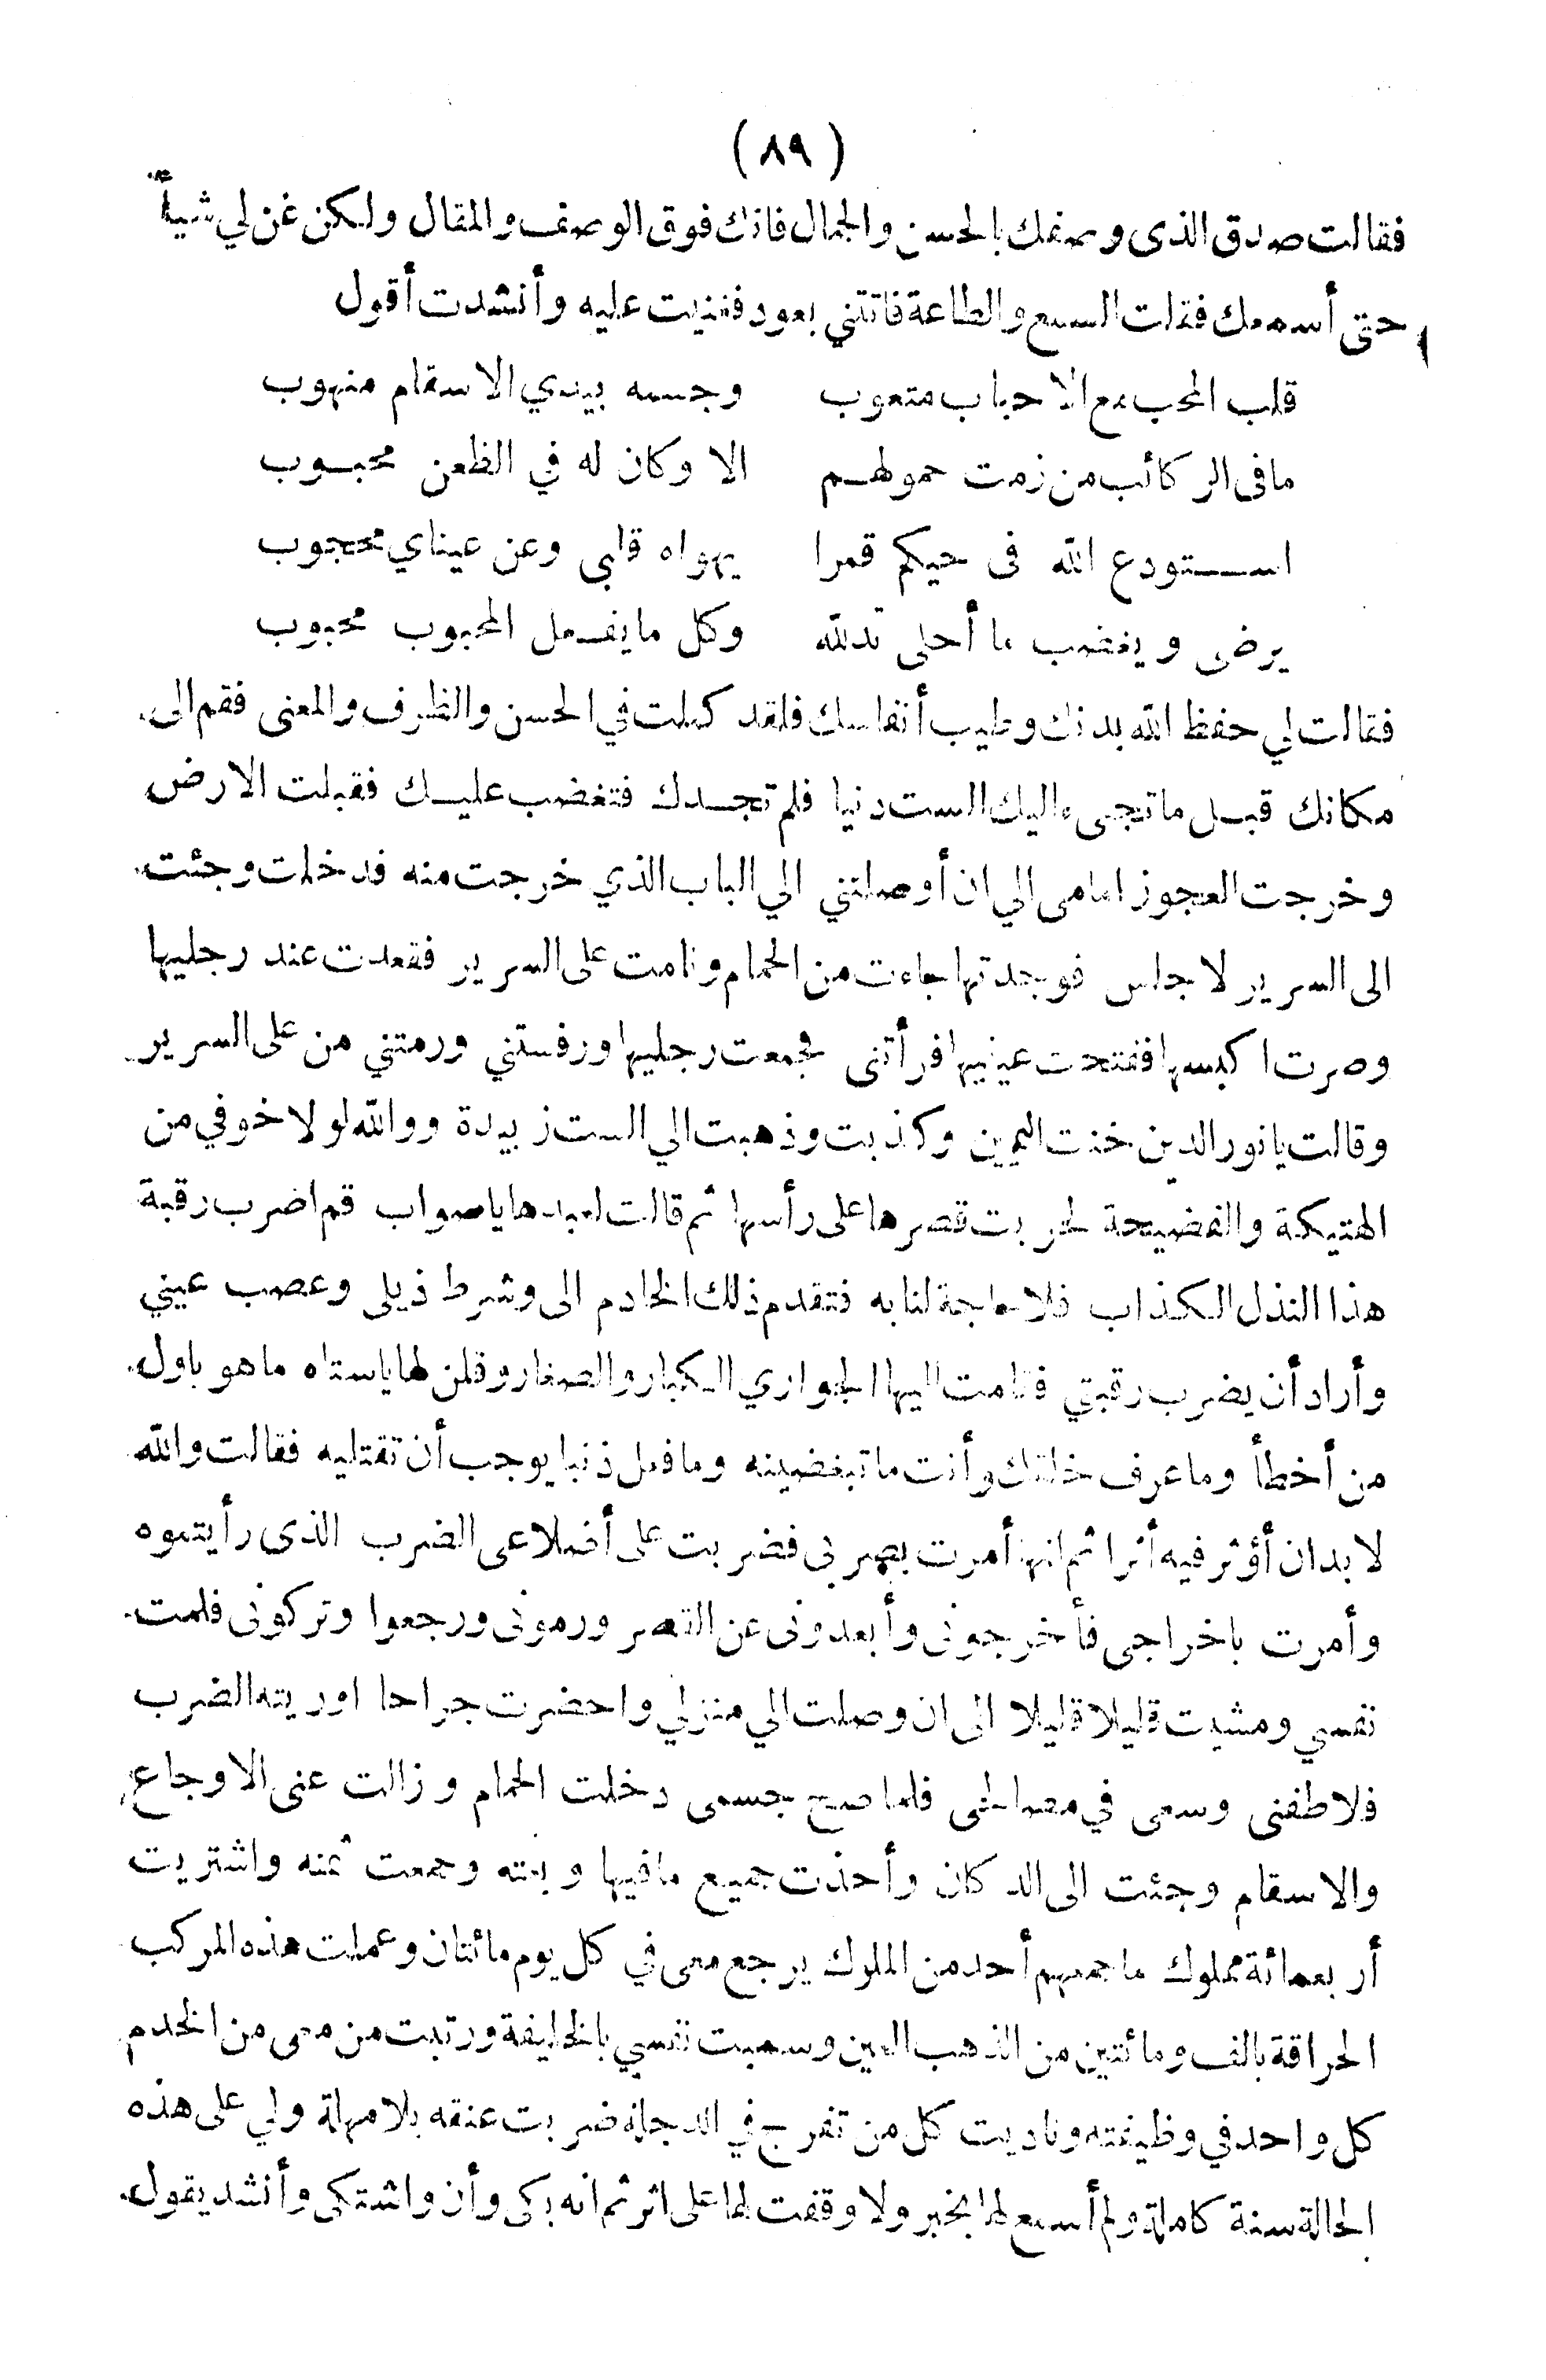 (٨٩)
فقالت صدق الذى وصفك بالحسن والجمال فانك فوق الوصف والمقال ولكن غن لي شيأ
حتى أسمعك فقلت السمع والطاعة فاتتني بعود فغنيت عليه وأنشدت أقول
قلب المحب مع الاحباب متعوب وجسمه بيدي الاسقام منهوب
مافى الركائب من زمت حمولهم الا وكان له في الظعن محبوب
استودع الله فى حيكم قمرا يهواه قلبى وعن عيناي محجوب
يرضى ويغضب ما أحلى تدلله وكل مايفعل المحبوب محبوب
فقالت لي حفظ الله بدنك وطيب أنفاسك فلقد كملت في الحسن والظرف والمعنى فقم الى
مكانك قبل ماتجىء اليك الست دنيا فلم تجدك فتغضب عليك فقبلت الارض
وخرجت العجوز امامى الي ان أوصلتني الي الباب الذي خرجت منه فدخلت وجئت
الى السرير لاجلس فوجدتها جاءت من الحمام ونامت على السرير فقعدت عند رجليها
وصرت اكبسها ففتحت عينيها فرأتنى فجمعت رجليها ورفستني ورمتني من على السرير
وقالت يانور الدين خنت اليمين وكذبت وذهبت الي الست زبيدة ووالله لولا خوفي من
الهتيكة والفضيحة لخربت قصرها على رأسها ثم قالت لعبدها ياصواب قم اضرب رقبة
هذا النذل الكذاب فلا حاجة لنا به فتقدم ذلك الخادم الى وشرط ذيلى وعصب عيني
وأراد أن يضرب رقبتي فقامت اليها الجواري الكبار والصغار وقلن لها ياستاه ماهو باول
من أخطأ وماعرف خلقك وأنت ماتبغضينه ومافعل ذنبا يوجب أن تقتليه فقالت والله
لابد ان أؤثر فيه أثرا ثم انها أمرت بضربى فضربت على أضلاعى الضرب الذى رأيتموه
وأمرت باخراجى فأخرجونى وأبعدونى عن القصر ورمونى ورجعوا وتركونى فلمت
نفسي ومشيت قليلا قليلا الى ان وصلت الي منزلي واحضرت جراحا اوريته الضرب
فلاطفنى وسعى في مصالحى فلما صح جسمى دخلت الحمام وزالت عنى الاوجاع
والاسقام وجئت الى الدكان وأخذت جميع مافيها وبعته وجمعت ثمنه واشتريت
أربعمائة مملوك ماجمعهم أحد من الملوك يرجع معى في كل يوم مائتان وعملت هذه المركب
الحراقة بالف ومائتين من الذهب العين وسميت نفسي بالخليفة ورتبت من معى من الخدم
كل واحد في وظيفته وناديت كل من تفرج في الدجلة ضربت عنقه بلامهلة ولي على هذه
الحالة سنة كاملة ولم أسمع لها بخبر ولا وقفت لها على اثر ثم انه بكى وأن واشتكى وأنشد يقول